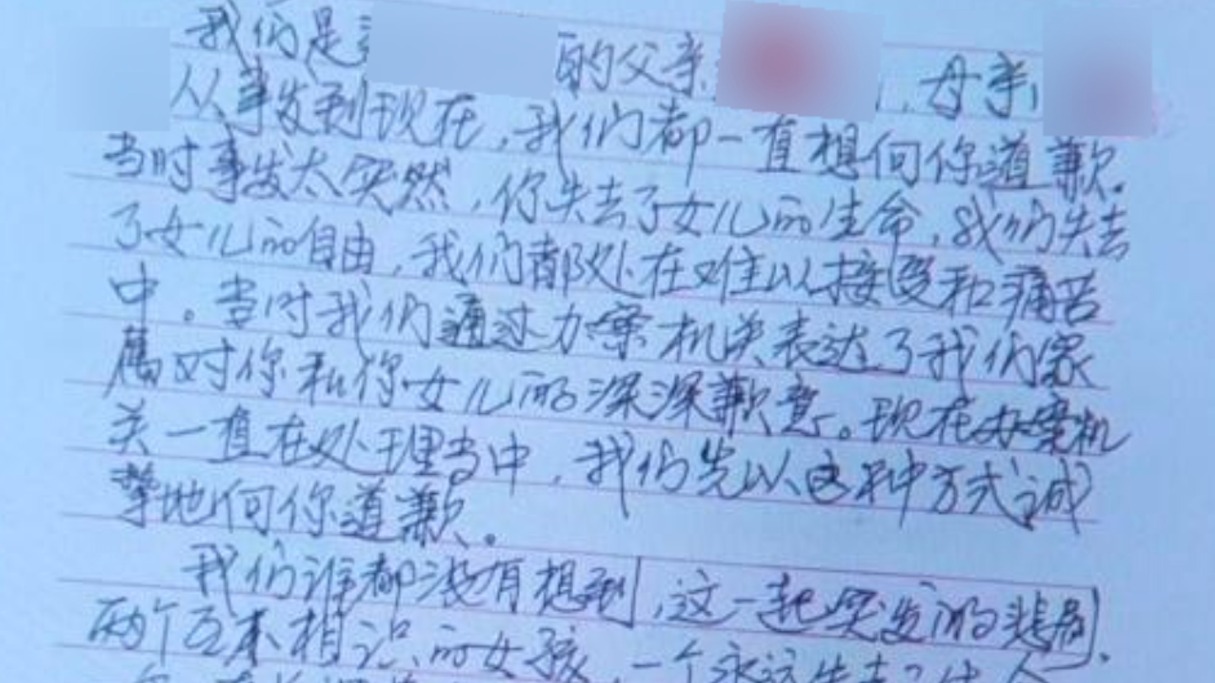 我们是 的父亲 ，母亲
从事发到现在，我们都一直想向你道歉。
当时事发太突然，你失去了女儿的生命，我们失去
了女儿的自由，我们都处在难以接受和痛苦
中。当时我们通过办案机关表达了我们家
属对你和你女儿的深深歉意。现在办案机
关一直在处理当中，我们先以这种方式诚
挚地向你道歉。
我们谁都没有想到，这一起突发的悲剧，
两个互不相识的女孩，一个永远失去了